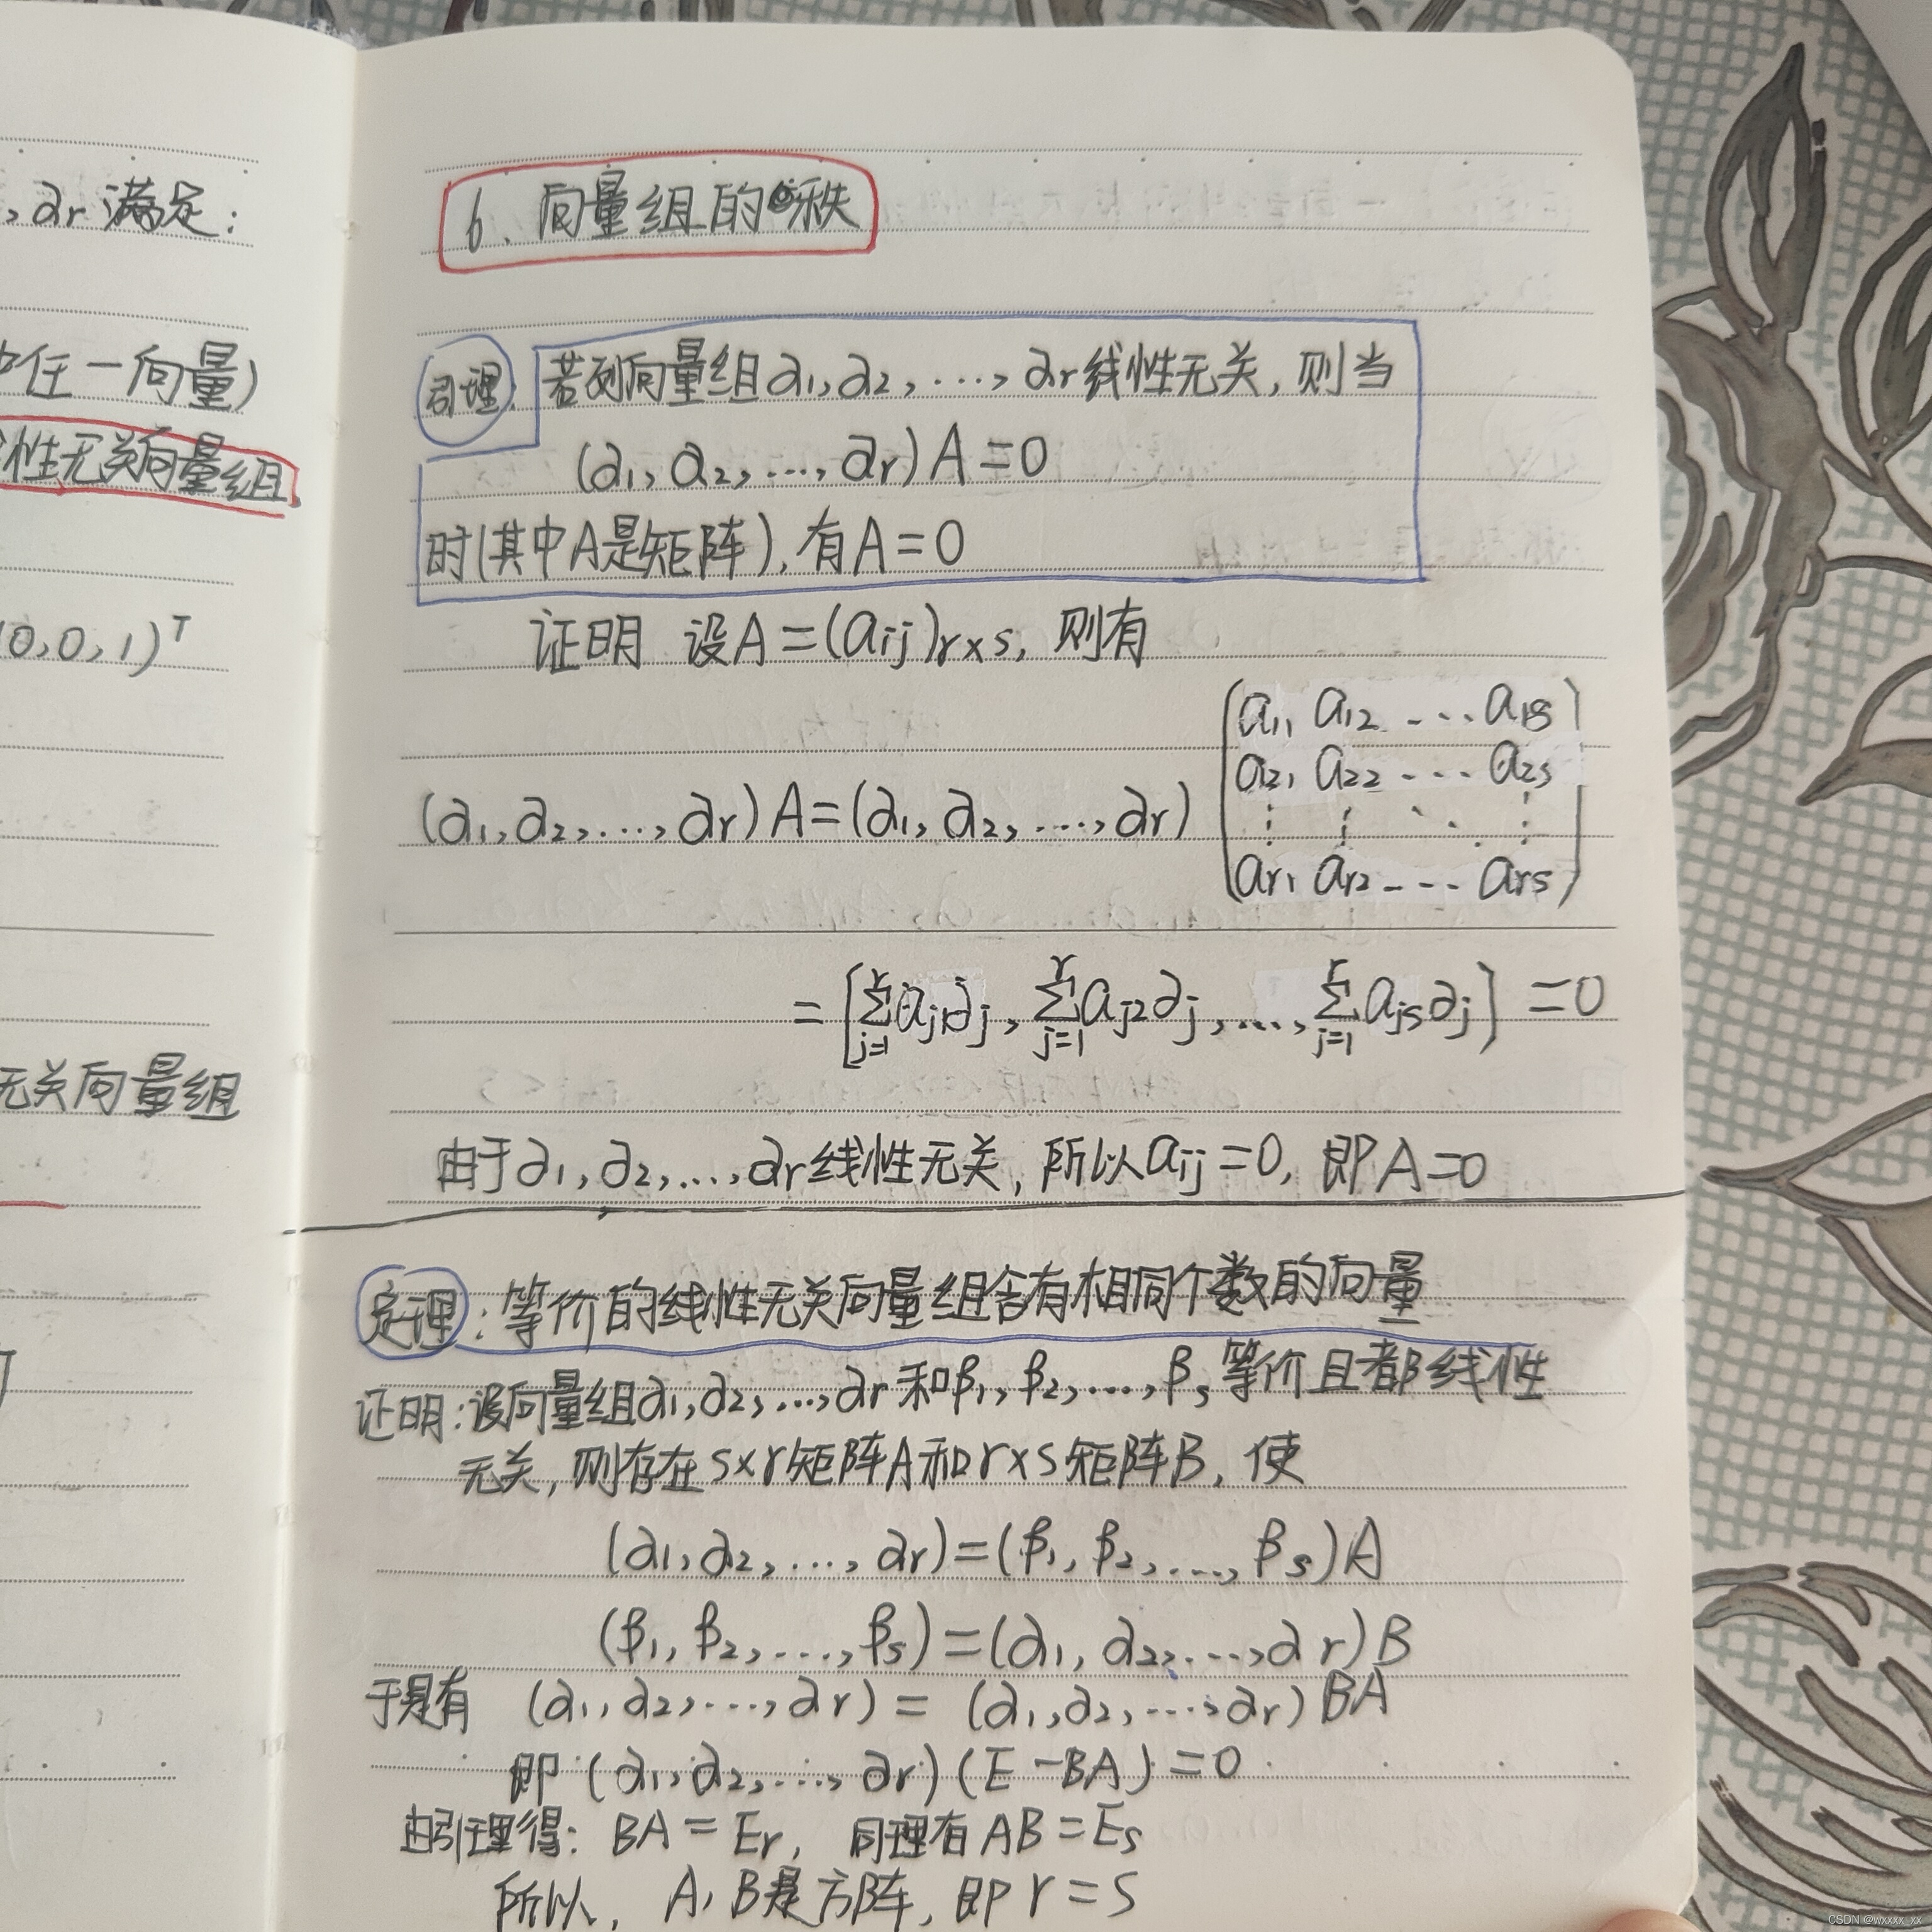 ,αr 满足:
任一向量)
性无关向量组
0,0,1)ᵀ
无关向量组
6、向量组的秩
引理: 若列向量组α1,α2,…,αr线性无关,则当
(α1,α2,…,αr)A=0
时(其中A是矩阵),有A=0
证明 设A=(aij)r×s, 则有
(α1,α2,…,αr)A=(α1,α2,…,αr)
a11 a12 … a1s
a21 a22 … a2s
⋮ ⋮ ⋱ ⋮
ar1 ar2 … ars
=[∑_{j=1}^{r} aj1αj, ∑_{j=1}^{r} aj2αj,…, ∑_{j=1}^{r} ajsαj]=0
由于α1,α2,…,αr线性无关,所以aij=0, 即A=0
定理:等价的线性无关向量组含有相同个数的向量
证明:设向量组α1,α2,…,αr和β1,β2,…,βs等价且都线性
无关,则存在s×r矩阵A和r×s矩阵B,使
(α1,α2,…,αr)=(β1,β2,…,βs)A
(β1,β2,…,βs)=(α1,α2,…,αr)B
于是有 (α1,α2,…,αr)=(α1,α2,…,αr)BA
即(α1,α2,…,αr)(E-BA)=0
由引理得:BA=Er, 同理有AB=Es
所以,A,B是方阵,即r=s
CSDN @wxxxx_xx